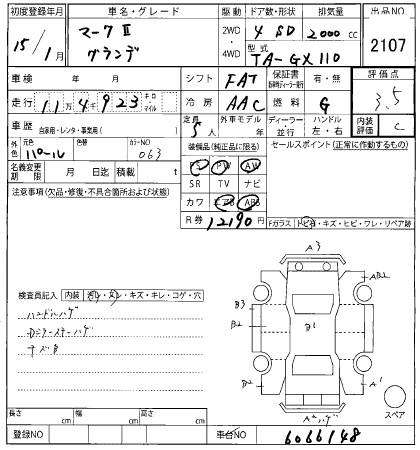 初度登録年月 車名・グレード 駆動 ドア数・形状 排気量 出品NO
15/1月 マークⅡ グランデ 2WD・4WD 4 SD 2000 cc 2107
型式 TA-GX110
車検 年 月 シフト FAT 保証書 有・無 評価点
走行 11万4千923 キロ・マイル 冷房 AAC 燃料 G 3.5
車歴 自家用・レンタ・事業用( ) 定員 5人 外車モデル ディーラー 並行 ハンドル 左・右 内装評価 C
外色 元色 パール 色替 カラーNO 063 装備品(純正品に限る) セールスポイント(正常に作動するもの)
名義変更期限 月 日迄 積載 t PS PW AW
注意事項(欠品・修復・不具合箇所および状態) SR TV ナビ
カワ エアB ABS
R券 12190円
Fガラス・トビ石・キズ・ヒビ・ワレ・リペア跡
A3
AB2
検査員記入 内装 汚レ・スレ・キズ・キレ・コゲ・穴
B3
B2
B1
B2
A1
スペア
長さ cm 幅 cm 高さ cm
登録NO 車台NO 6066148